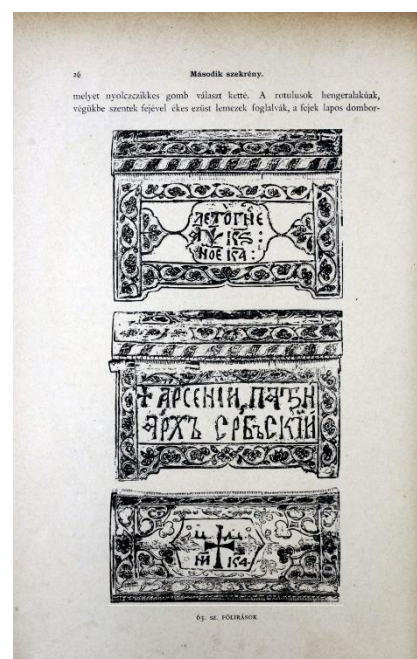 26
Második szekrény.
melyet nyolczczikkes gomb választ ketté. A rotulusok hengeralakúak,
végükbe szentek fejével ékes ezüst lemezek foglalvák, a fejek lapos dombor-
АРСЕНІИ, ПАТ
АРХЪ СРБЪСКІЙ
63. sz. FÖLIRÁSOK